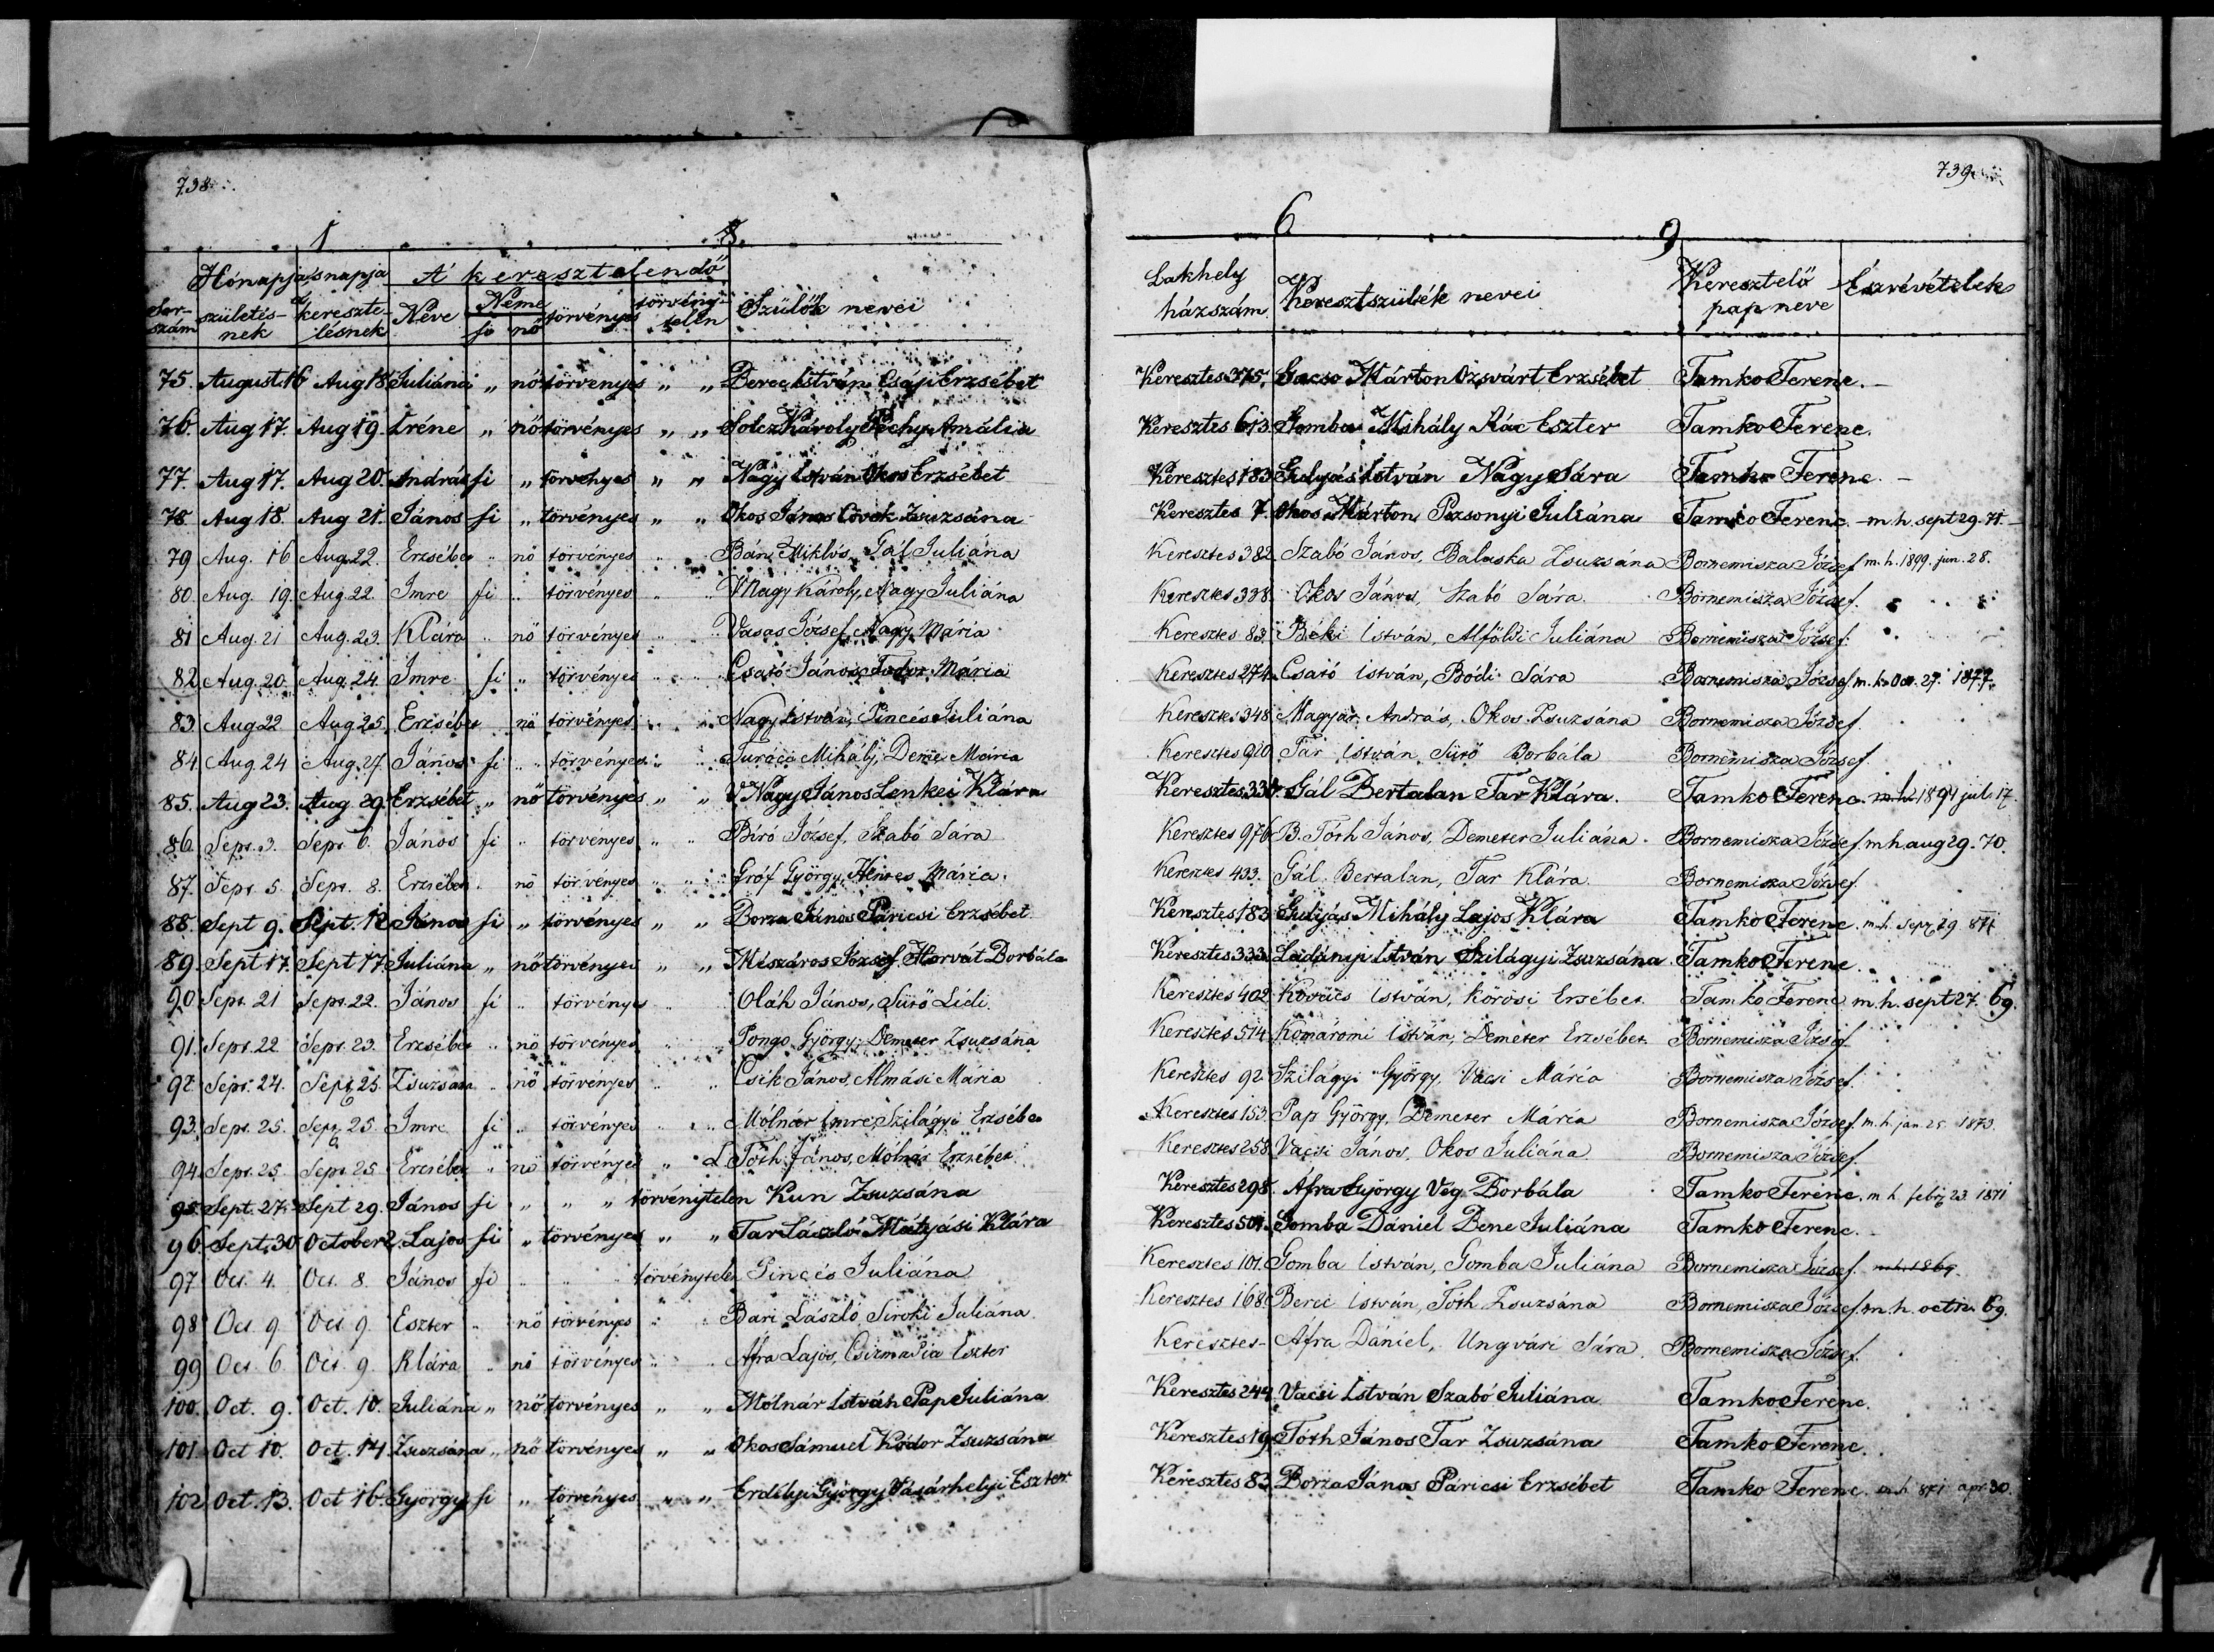 738
739
1 8 6 9
Hónapja, 's napja A' keresztelendő
Sorszám születésnek a' keresztelésnek Neve Neme fi nő törvényes törvénytelen Szülők nevei Lakhely házszám Keresztszülék nevei Keresztelő pap neve Észrevételek
75. August. 16 Aug 18 Juliána „ nő törvényes „ „ Berec István Csáji Erzsébet Keresztes 375. Gacso Márton Ozsvárt Erzsébet Tamko Ferenc. –
76. Aug 17. Aug 19. Iréne „ nő törvényes „ „ Solcz Károly Péchy Amália Keresztes 613 Gomba Mihály Rác Eszter Tamko Ferenc.
77. Aug 17. Aug 20. András fi „ törvényes „ „ Nagy István Okos Erzsébet Keresztes 183 Gulyás István Nagy Sára Tamko Ferenc. –
78. Aug 18. Aug 21. János fi „ törvényes „ „ Okos János Cövek Zsuzsána Keresztes 7. Okos Márton Pozsonyi Juliána Tamko Ferenc. – m. h. sept 29. 71. –
79 Aug. 16 Aug. 22. Erzsébet „ nő törvényes „ „ Bán Miklós, Gál Juliána Keresztes 382 Szabó János, Balaska Zsuzsána Bornemisza József m. h. 1899. jun. 28.
80. Aug. 19. Aug 22. Imre fi „ törvényes „ „ V Nagy Károly, Nagy Juliána Keresztes 338. Okos János, Szabó Sára. Bornemisza József.
81 Aug. 21 Aug. 23. Klára „ nő törvényes „ „ Vasas József, Nagy Mária Keresztes 83. Béki István, Alföldi Juliána Bornemisza József.
82 Aug. 20. Aug. 24. Imre fi „ törvényes „ „ Csató János, Fodor Mária Keresztes 274 Csató István, Bódi Sára Bornemisza József. m. h. Oct. 27. 1877.
83. Aug 22 Aug. 25. Erzsébet nő törvényes „ „ Nagy István, Pincés Juliána Keresztes 348. Magyar András, Okos Zsuzsána Bornemisza József.
84 Aug. 24 Aug. 27. János fi „ törvényes „ „ Turáci Mihály, Deme Mária Keresztes Tar István Sütő Borbála Bornemisza József.
85. Aug 23. Aug 29. Erzsébet „ nő törvényes „ „ V Nagy János Lenkei Klára Keresztes 338. Gál Bertalan Tar Klára. Tamko Ferenc. m. h. 1894 jul. 17.
86. Sept. 3. Sept 6. János fi „ törvényes „ „ Bíró József, Szabó Sára Keresztes 976 B. Tóth János, Demeter Juliána. Bornemisza József. m. h. aug 29. 70.
87. Sept. 5. Sept. 8. Erzsébet nő törvényes „ „ Gróf György, Heves Mária. Keresztes 433. Gál Bertalan, Tar Klára. Bornemisza József.
88. Sept 9. Sept. 12 János fi „ törvényes „ „ Borza János Páricsi Erzsébet Keresztes 183 Gulyás Mihály Lajos Klára Tamko Ferenc. m. h. Sept 29. 871
89. Sept 17. Sept 17 Juliána „ nő törvényes „ „ Mészáros József Horvát Borbála Keresztes 333. Ladányi István Szilágyi Zsuzsána Tamko Ferenc.
90. Sept. 21 Sept. 22. János fi „ törvényes „ Oláh János, Sütő Lidi. Keresztes 402 Kovács István, Kőrösi Erzsébet Tamko Ferenc m. h. sept 27. 69.
91. Sept. 22 Sept. 23. Erzsébet „ nő törvényes „ „ Pongo György, Demeter Zsuzsána Keresztes 514 Komáromi István, Demeter Erzsébet Bornemisza József.
92 Sept. 24. Sept. 25. Zsuzsána „ nő törvényes „ „ Csik János, Almási Mária Keresztes 92 Szilágyi György, Vacsi Mária Bornemisza József.
93. Sept. 25. Sept 25. Imre fi „ törvényes „ „ Mólnár Imre, Szilágyi Erzsébet Keresztes 153. Pap György, Demeter Mária Bornemisza József. m. h. jan. 25. 1873.
94. Sept. 25. Sept. 25 Erzsébet „ nő törvényes „ L Tóth János, Mólnár Erzsébet Keresztes 258. Vacsi János, Okos Juliána. Bornemisza József.
95. Sept. 27. Sept 29. János fi „ „ „ törvénytelen Kun Zsuzsána Keresztes 298. Áfra György Vég Borbála Tamko Ferenc. m. h. febr. 23. 1871
96. Sept. 30 October 2. Lajos fi „ törvényes „ „ Tar László Mátyási Klára Keresztes 501. Gomba Dániel Bene Juliána Tamko Ferenc. –
97 Oct. 4. Oct. 8. János fi „ „ „ törvénytelen Pincés Juliána Keresztes 101. Gomba István, Gomba Juliána Bornemisza József. m. h. 1869.
98 Oct. 9. Oct. 9. Eszter „ nő törvényes „ „ Bari László, Siroki Juliána Keresztes 168 Berec István, Tóth Zsuzsána Bornemisza József. m. h. oct 69.
99 Oct. 6. Oct. 9. Klára „ nő törvényes „ „ Áfra Lajos, Csizmadia Eszter Keresztes – Áfra Dániel, Ungvári Sára. Bornemisza József.
100. Oct. 9. Oct. 10. Juliána „ nő törvényes „ „ Mólnár István Pap Juliána Keresztes 244. Vacsi István Szabó Juliána Tamko Ferenc.
101. Oct 10. Oct. 14 Zsuzsána „ nő törvényes „ „ Okos Sámuel Kodor Zsuzsána Keresztes 19. Tóth János Tar Zsuzsána Tamko Ferenc.
102 Oct. 13. Oct 16. György fi „ törvényes „ „ Erdélyi György Vásárhelyi Eszter Keresztes 83. Borza János Páricsi Erzsébet Tamko Ferenc. m. h. 871 apr. 30.